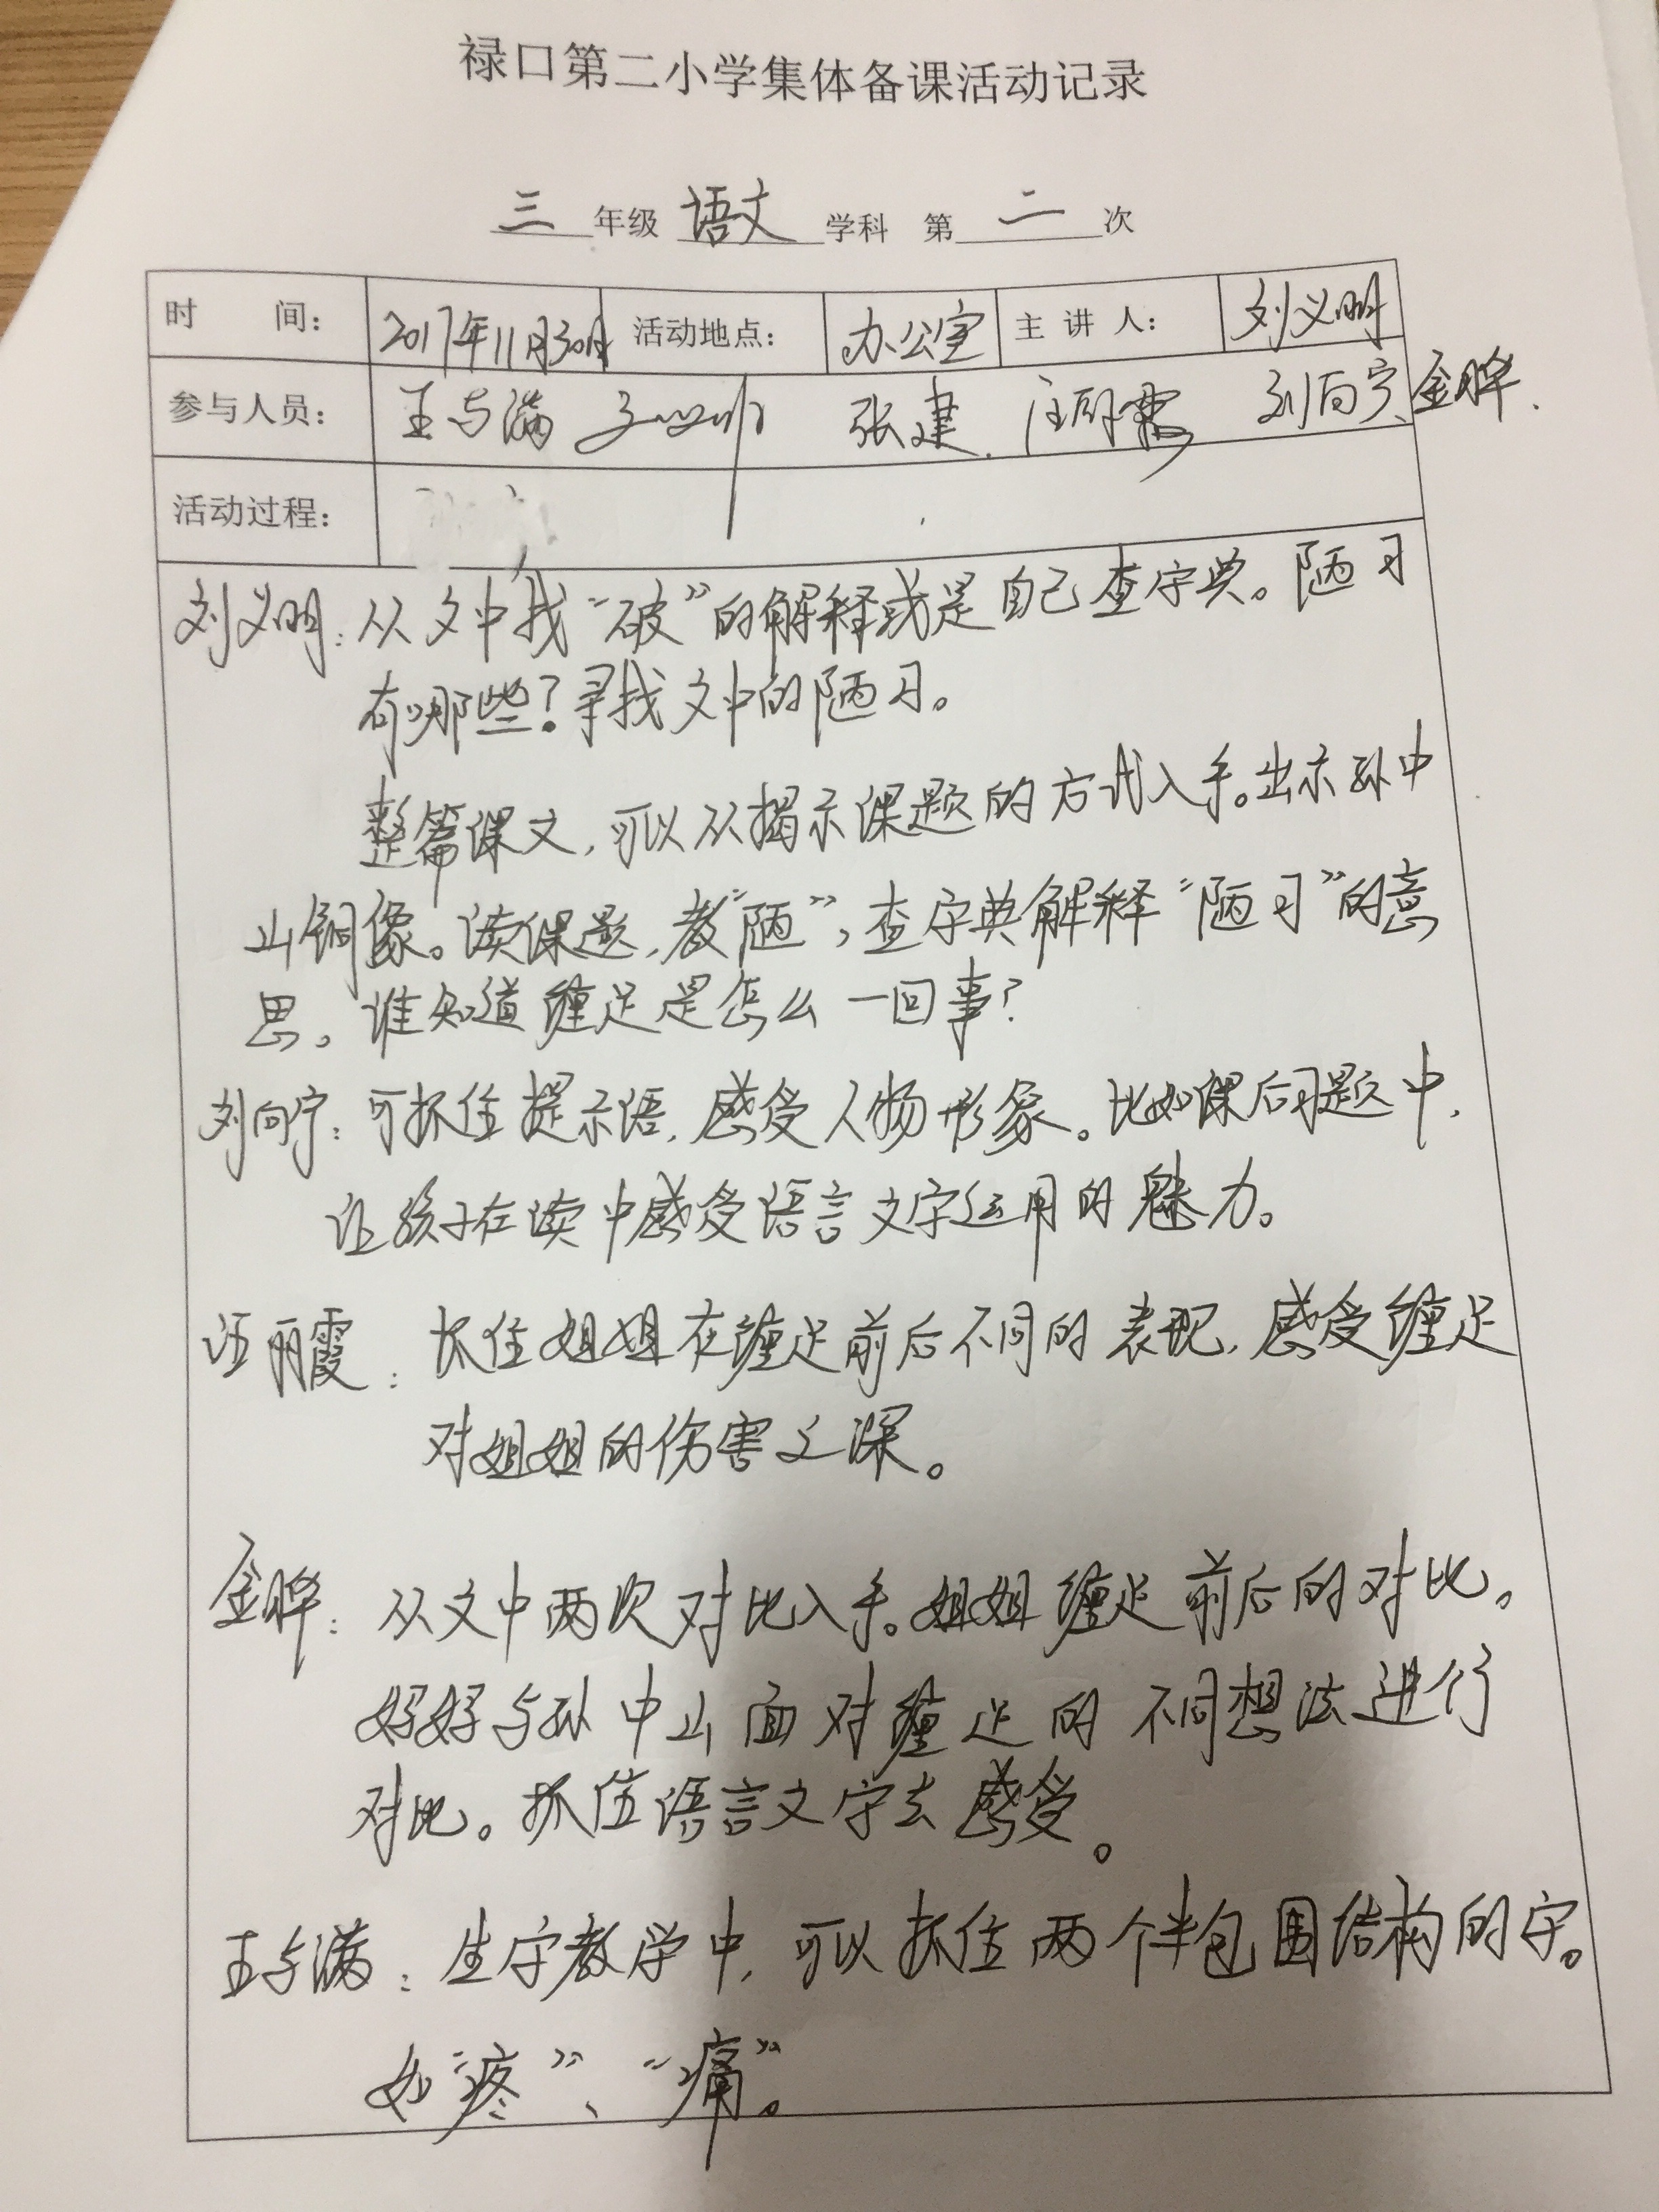 禄口第二小学集体备课活动记录
三年级 语文 学科 第 二 次
时 间： 2017年11月30日 活动地点： 办公室 主 讲 人： 刘义明
参与人员： 王与满 张建. 汪丽霞 刘向宁 金晔.
活动过程：
刘义明：从文中找“破”的解释或是自己查字典。陋习
有哪些？寻找文中的陋习。
整篇课文，可以从揭示课题的方式入手。出示孙中
山铜像。读课题，教“陋”，查字典解释“陋习”的意
思。谁知道缠足是怎么一回事？
刘向宁：可抓住提示语，感受人物形象。比如课后习题中，
让孩子在读中感受语言文字运用的魅力。
汪丽霞：抓住姐姐在缠足前后不同的表现，感受缠足
对姐姐的伤害之深。
金晔：从文中两次对比入手。姐姐缠足前后的对比。
妈妈与孙中山面对缠足的不同想法进行
对比。抓住语言文字去感受。
王与满：生字教学中，可以抓住两个半包围结构的字。
如“疼”、“痛”。